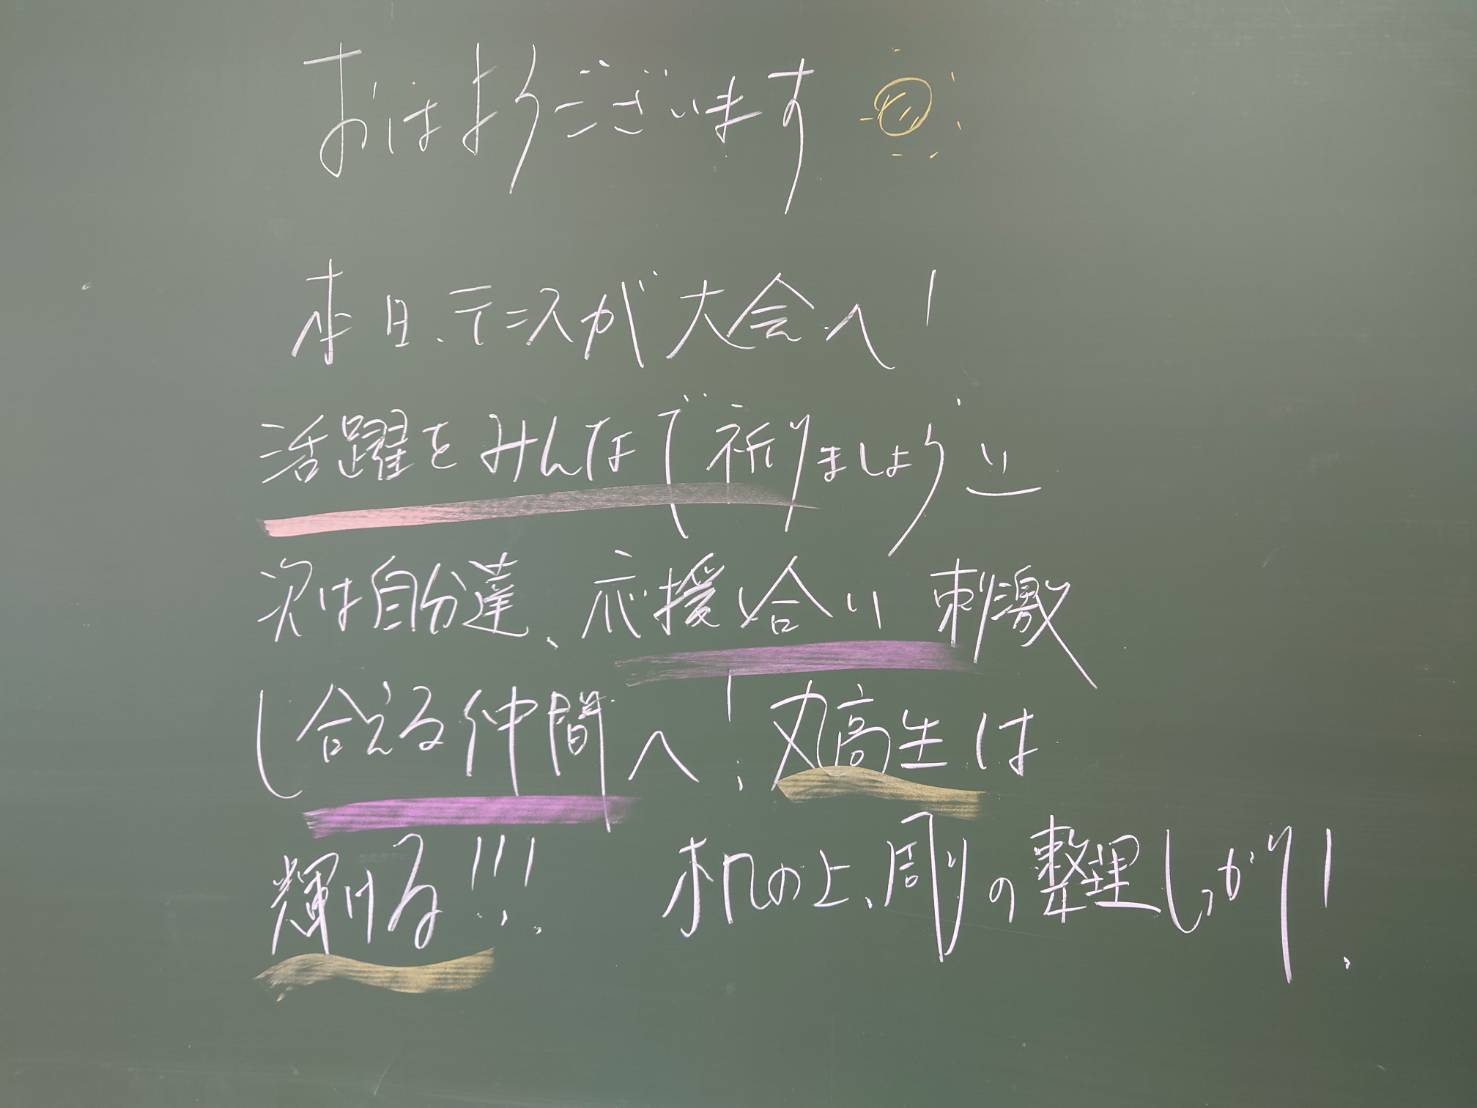 おはようございます
本日、テニスが大会へ!
活躍をみんなで祈りましょう
次は自分達、応援し合い刺激
し合える仲間へ!丸高生は
輝ける!!!
机の上、周りの整理しっかり!